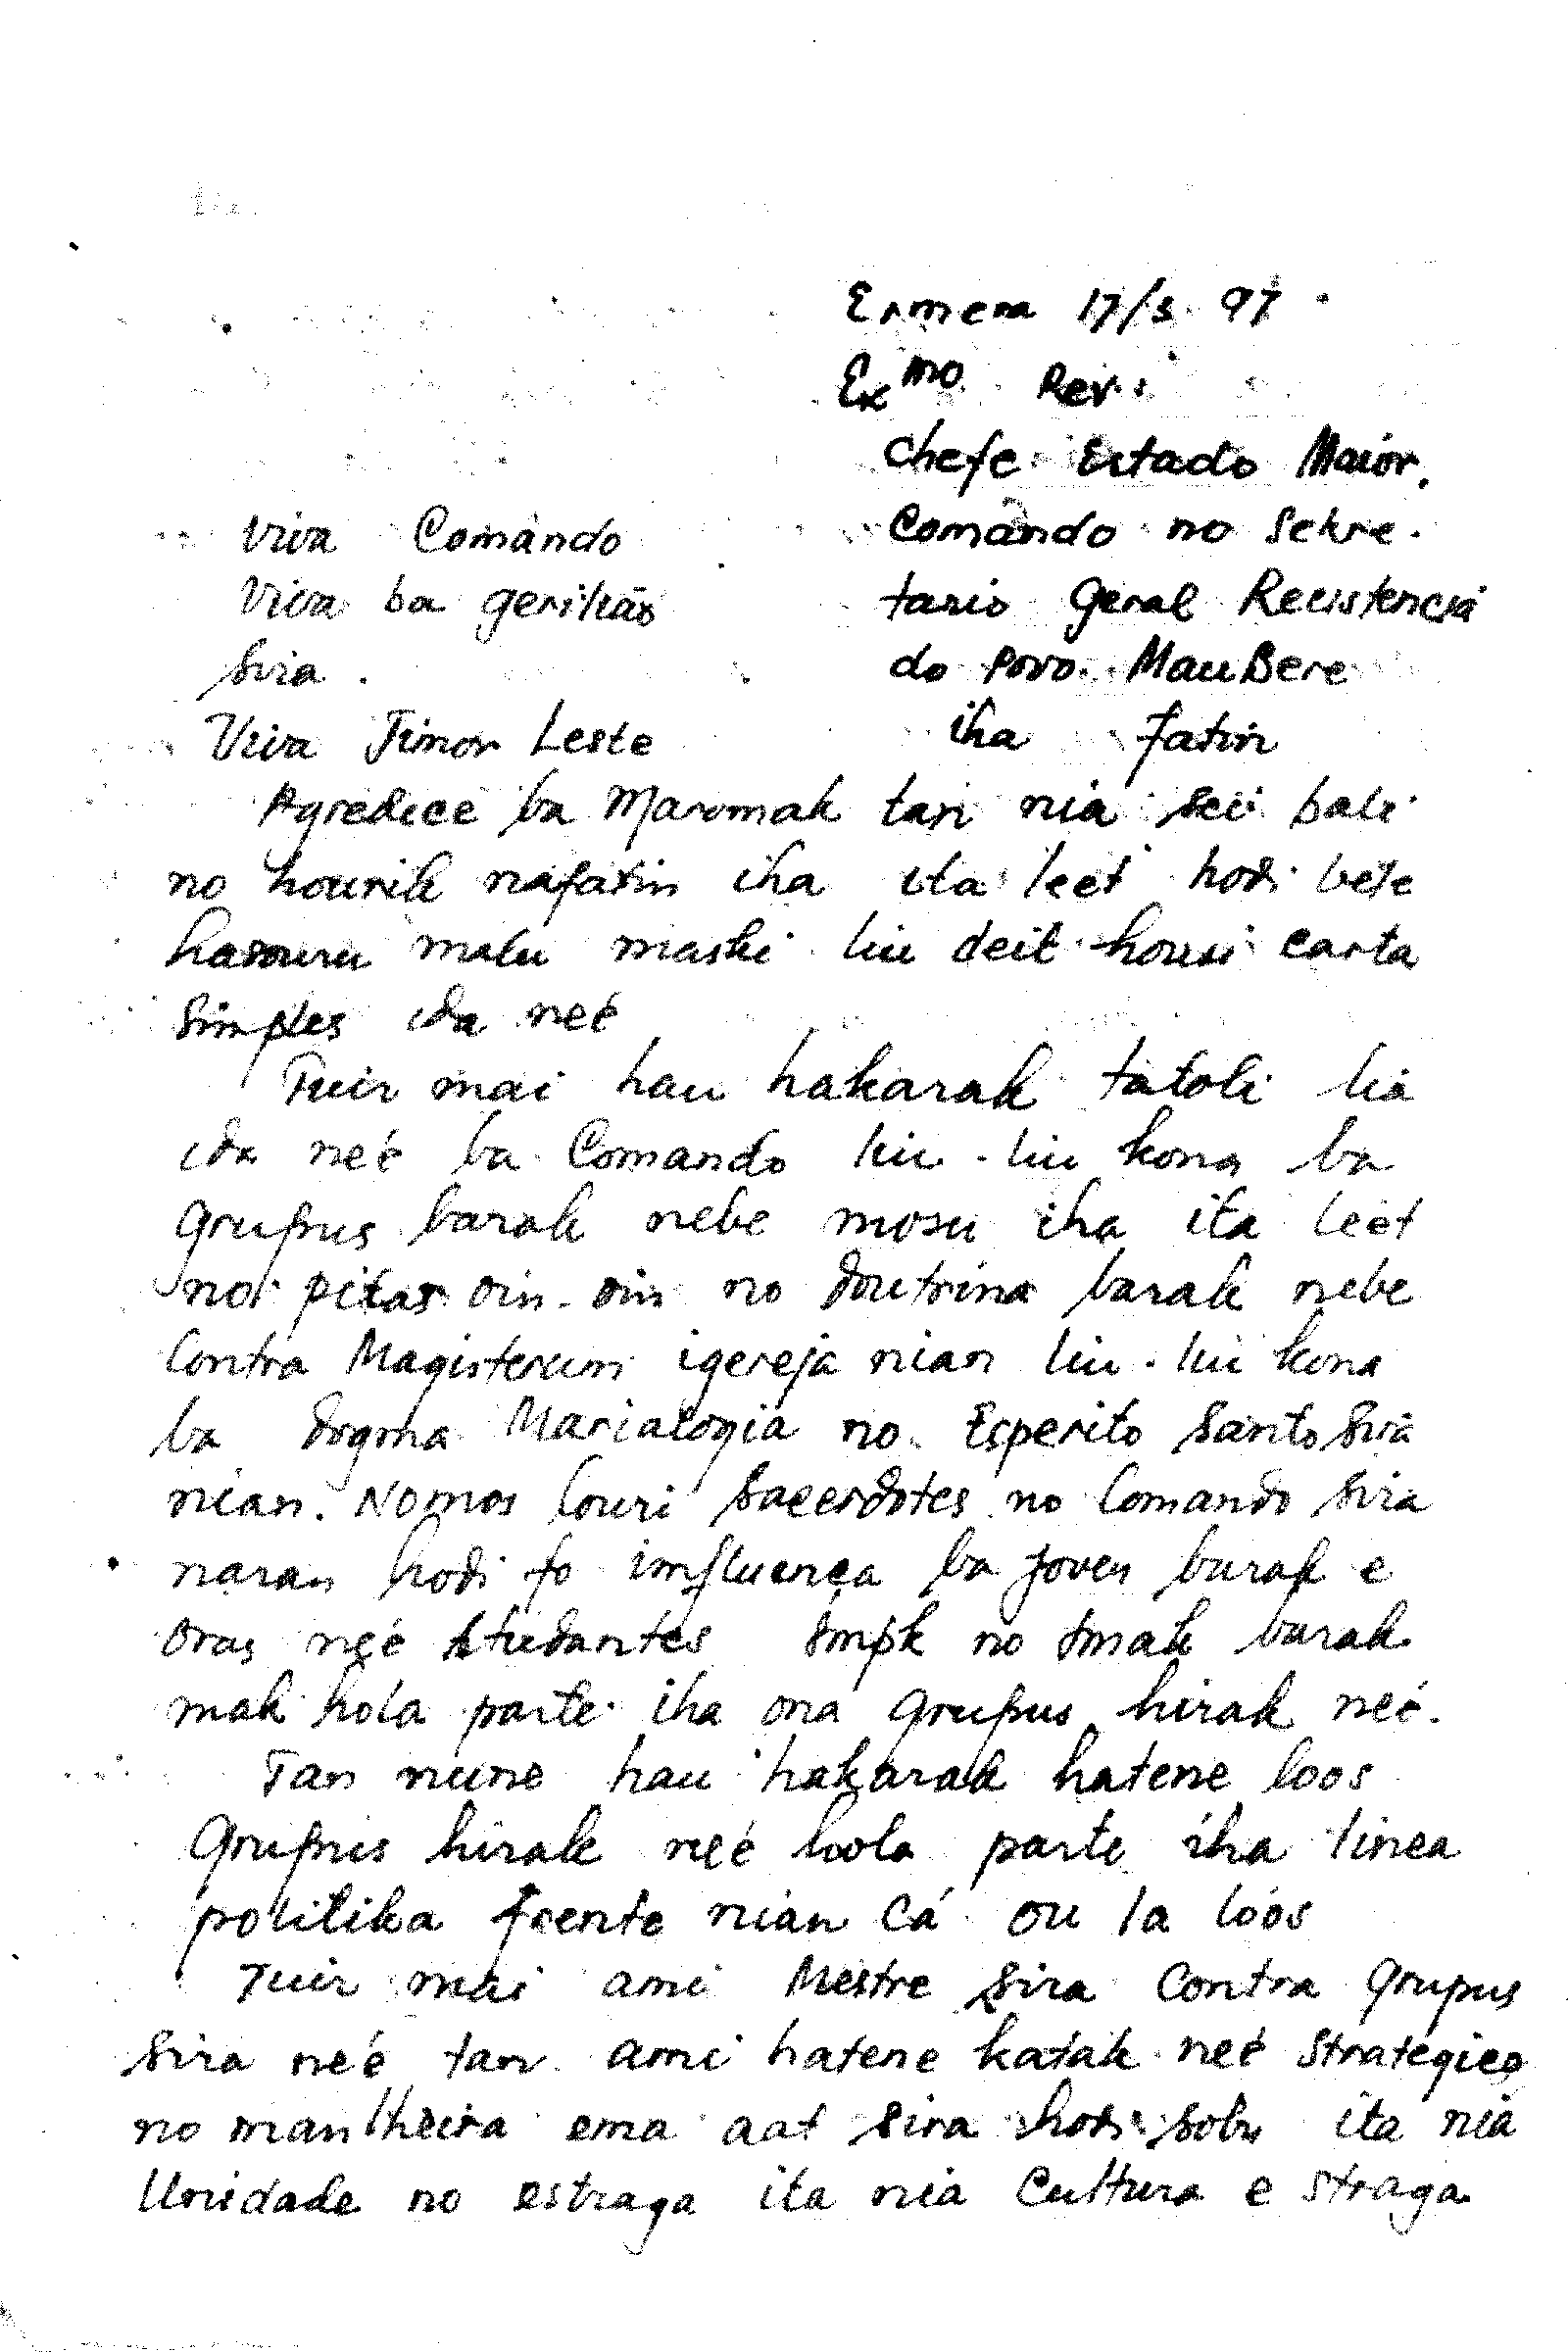 Ermera 17/3. 97.
Ex mo Rev.:
Chefe Estado Maior.
Comando no Sekre-
tario Geral Recistencia
do Povo. MauBere
iha fatin
Viva Comando
Viva ba gerilhão
Sira.
Viva Timor Leste
Agredece ba Maromak tan nia sei bali
no hourik nafatin iha ita leet hodi bele
hasouru malu maski liu deit housi carta
Simples ida neé
Tuir mai hau hakarak tatoli lia
ida neé ba Comando liu-liu kona ba
Grupus barak nebe mosu iha ita leet
no pitas oin-oin no doutrina barak nebe
Contra Magisterium igereja nian liu-liu kona
ba dogma Marialogia no Esperito Santo Sira
nian. Nomos louri Sacerdotes no Comando Sira
naran hodi fo influença ba joven barak e
Oras neé Studantes Smpk no Smak barak
mak hola parte iha ona Grupus hirak neé.
Tan nune hau hakarak hatene loos
Grupus hirak neé hola parte iha linea
politika frente nian Cá ou la loós
Tuir mai ami Mestre Sira Contra Grupus
Sira neé tan ami hatene katak neé Strategico
no manlheira ema aat sira hodi sobu ita nia
Unidade no estraga ita nia Cultura e straga